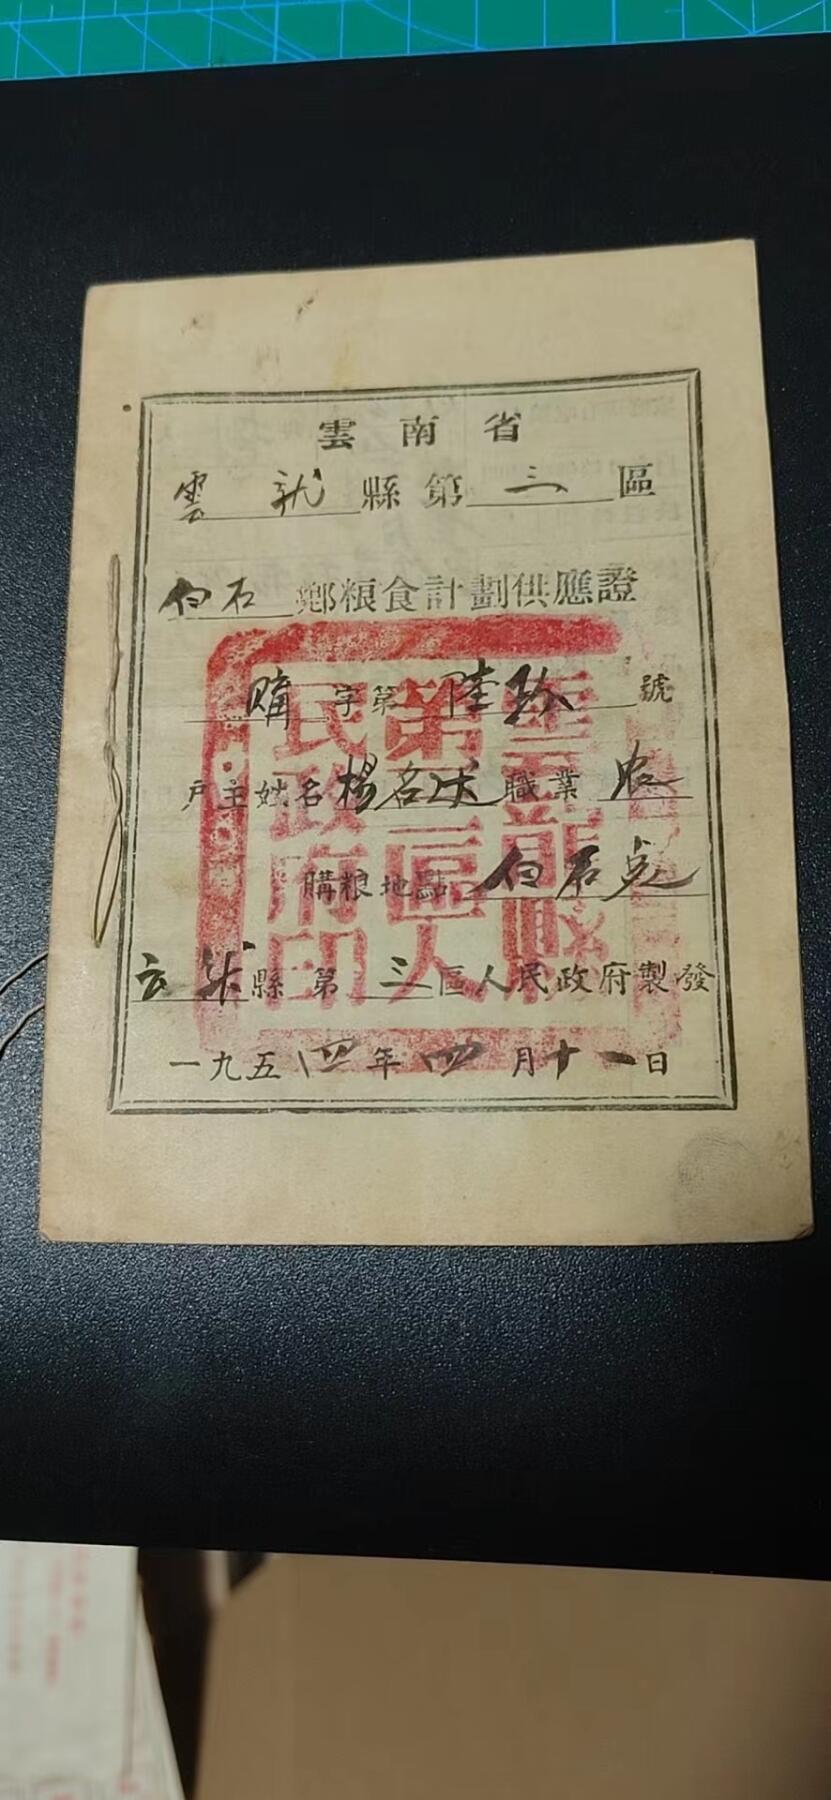 雲南省
雲龍縣第三區
白石鄉粮食計劃供應證
購字第陸玖號
戶主姓名楊名 職業农
購粮地點白石
云龙縣第三區人民政府製發
一九五四年四月十一日
雲龍縣
第三區人
民政府印